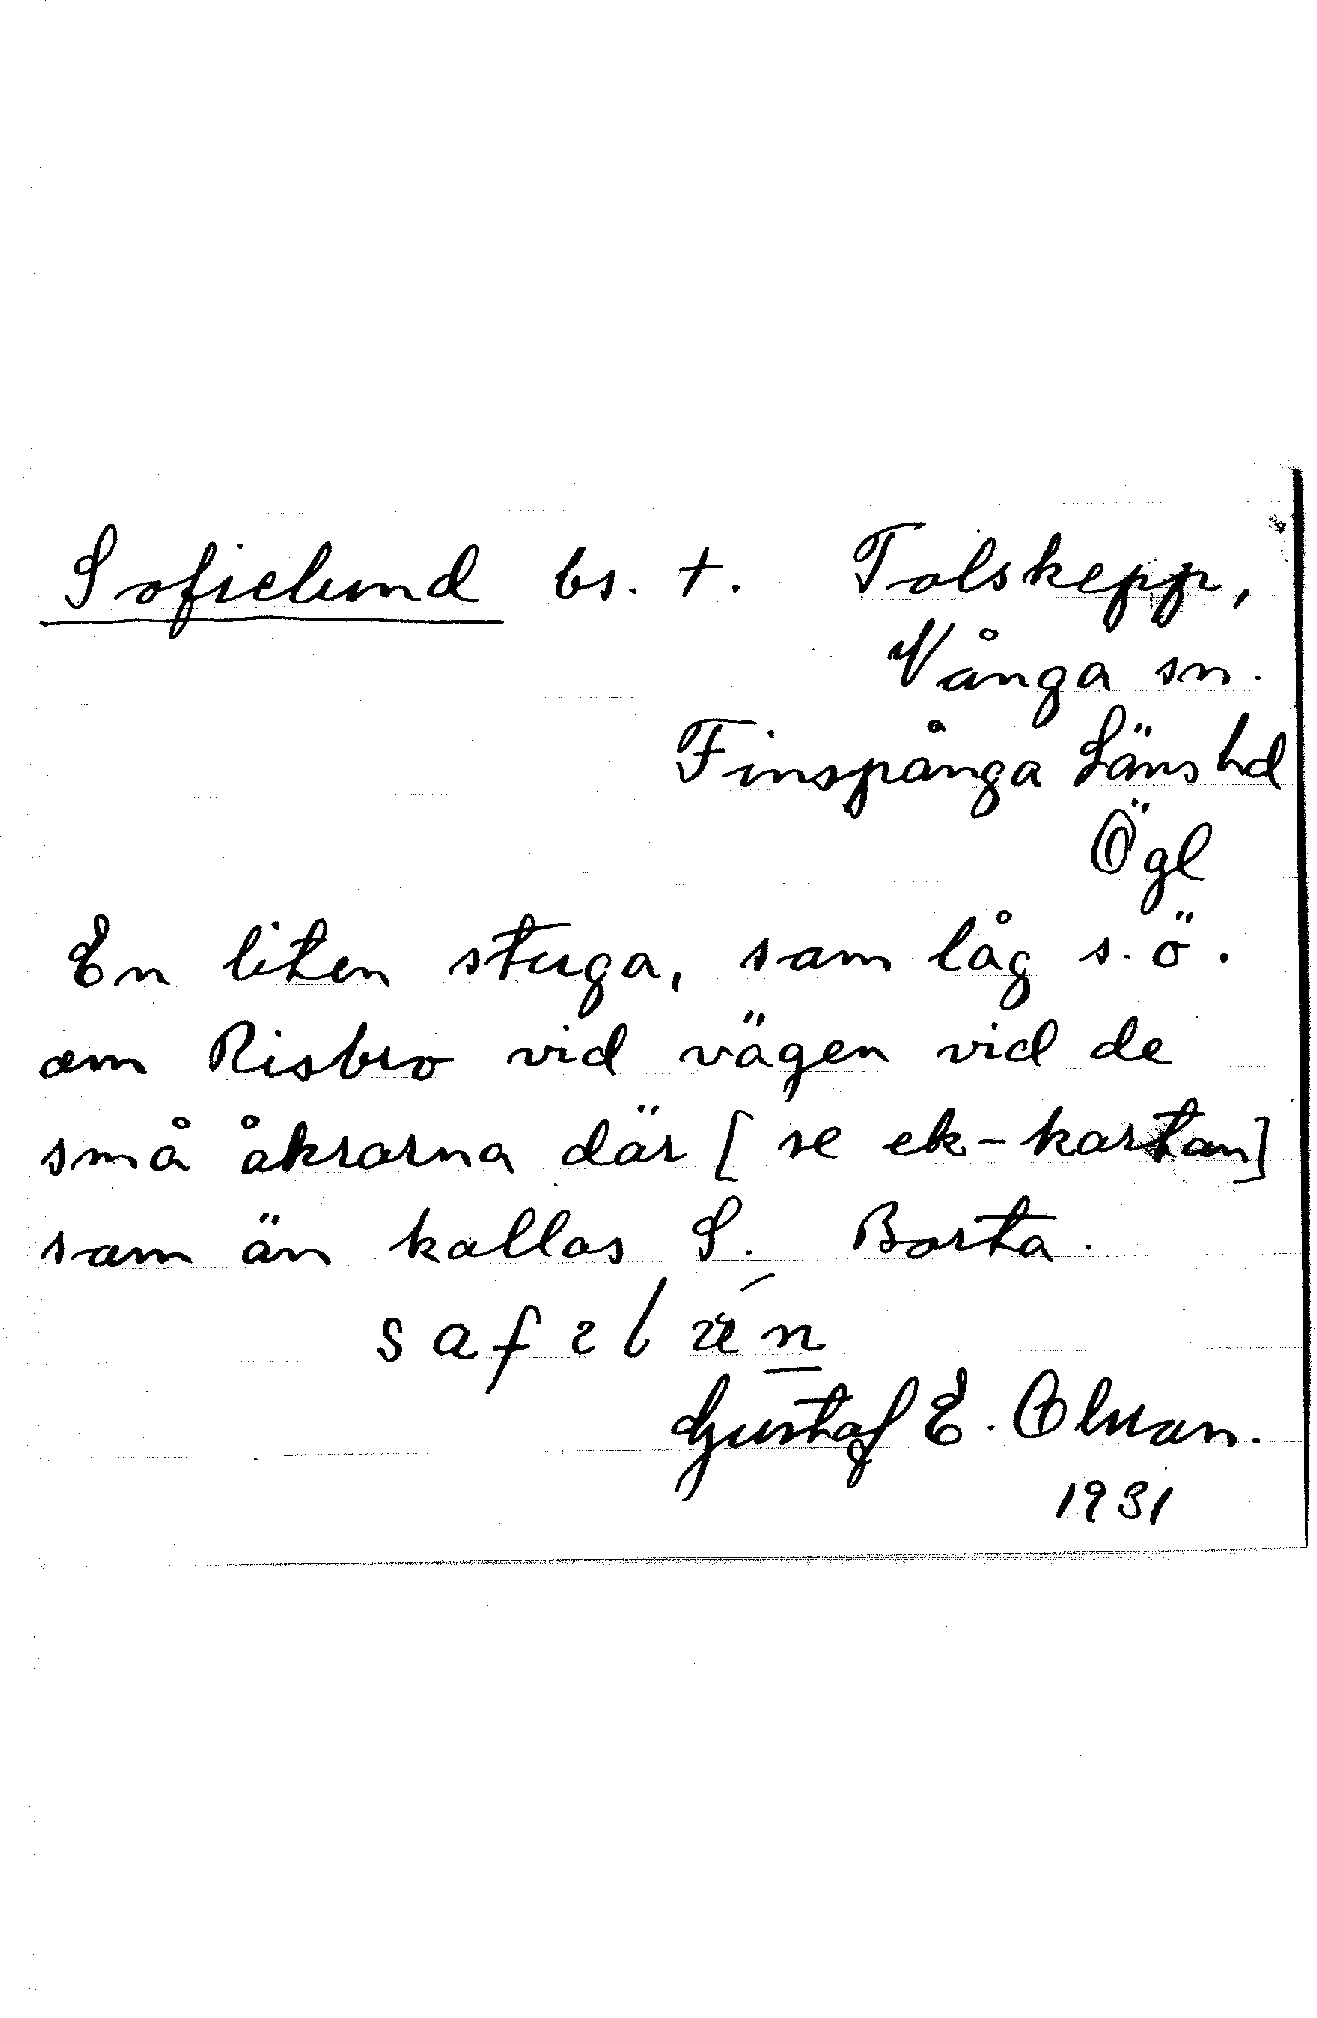 Sofielund bs. t. Tolskepp,
Vånga sn.
Finspånga Läns hd
Ögl
En liten stuga, som låg s.ö.
om Risbro vid vägen vid de
små åkrarna där [se ek-kartan]
som än kallas S. Borta.
Gustaf E. Olsson.
1931